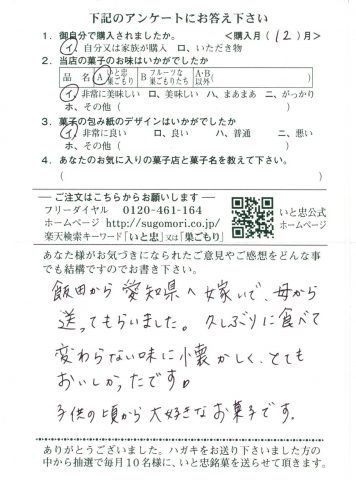 下記のアンケートにお答え下さい
1．御自分で購入されましたか。 ＜購入月(12)月＞
イ、自分又は家族が購入 ロ、いただき物
2．当店の菓子のお味はいかがでしたか
品名 A いと忠巣ごもり B フルーツな巣ごもりたち A・B以外( )
イ、非常に美味しい ロ、美味しい ハ、まあまあ ニ、がっかり
ホ、その他( )
3．菓子の包み紙のデザインはいかがでしたか
イ、非常に良い ロ、良い ハ、普通 ニ、悪い
ホ、その他( )
4．あなたのお気に入りの菓子店と菓子名を教えて下さい。
( )
ご注文はこちらからお願いします
フリーダイヤル 0120-461-164
ホームページ http://sugomori.co.jp/
楽天検索キーワード「いと忠」又は「巣ごもり」
いと忠公式
ホームページ
あなた様がお気づきになられたご意見やご感想をどんな事
でも結構ですのでお書き下さい。
飯田から愛知県へ嫁いで、母から
送ってもらいました。久しぶりに食べて
変わらない味に懐かしく、とても
おいしかったです。
子供の頃から大好きなお菓子です。
ありがとうございました。ハガキをお送り下さいました方の
中から抽選で毎月10名様に、いと忠銘菓を送らせて頂きます。